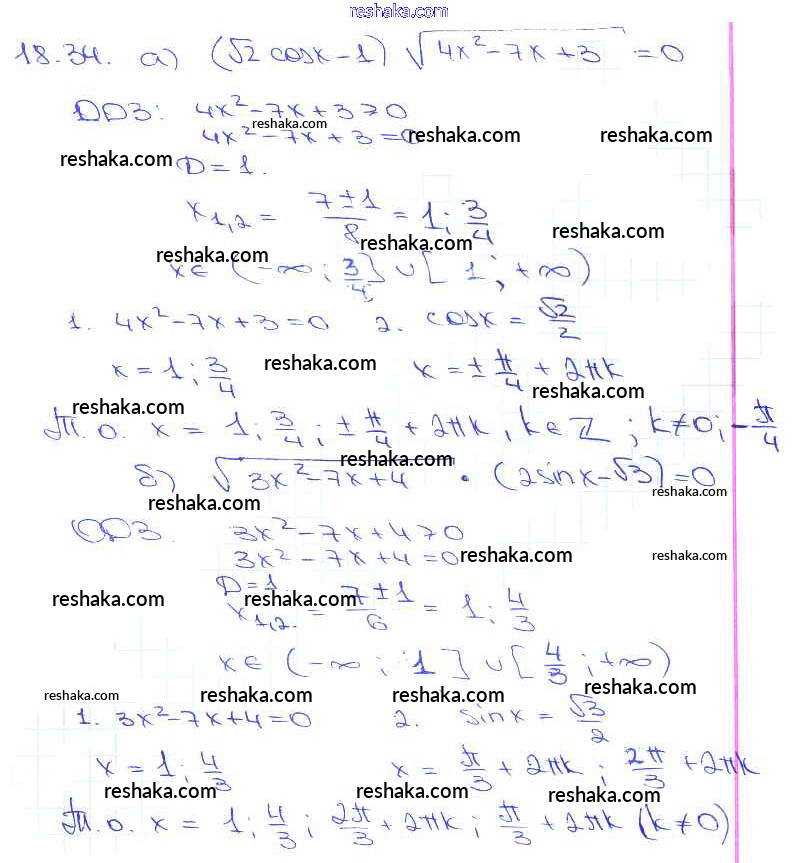 reshaka.com
18.34. а) (√2 cosx - 1) √(4x² - 7x + 3) = 0
ОДЗ: 4x² - 7x + 3 ≥ 0
reshaka.com
4x² - 7x + 3 = 0 reshaka.com reshaka.com
reshaka.com
D = 1.
x₁,₂ = (7 ± 1)/8 = 1; 3/4 reshaka.com
reshaka.com reshaka.com
x ∈ (-∞; 3/4] ∪ [1; +∞)
1. 4x² - 7x + 3 = 0 2. cosx = √2/2
x = 1; 3/4 reshaka.com x = ± π/4 + 2πk
reshaka.com reshaka.com
Т.о. x = 1; 3/4; ± π/4 + 2πk, k ∈ Z; k ≠ 0; - π/4
reshaka.com
б) √(3x² - 7x + 4) · (2sinx - √3) = 0
reshaka.com reshaka.com
ОДЗ. 3x² - 7x + 4 ≥ 0
3x² - 7x + 4 = 0 reshaka.com reshaka.com
D = 1.
reshaka.com reshaka.com reshaka.com
x₁,₂ = (7 ± 1)/6 = 1; 4/3
x ∈ (-∞; 1] ∪ [4/3; +∞)
reshaka.com reshaka.com reshaka.com reshaka.com
1. 3x² - 7x + 4 = 0 2. sinx = √3/2
x = 1; 4/3 x = π/3 + 2πk; 2π/3 + 2πk
reshaka.com reshaka.com reshaka.com
Т.о. x = 1; 4/3; 2π/3 + 2πk; π/3 + 2πk (k ≠ 0)
reshaka.com